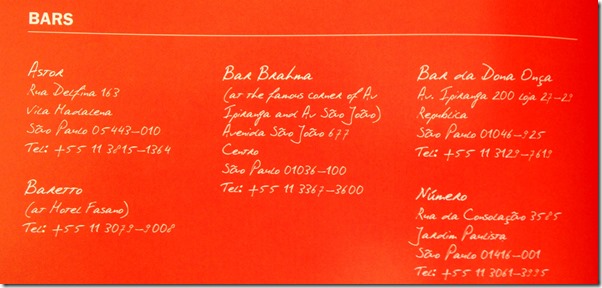 BARS
Astor
Rua Delfina 163
Vila Madalena
São Paulo 05443–010
Tel: +55 11 3815–1364
Baretto
(at Hotel Fasano)
Tel: +55 11 3079–9008
Bar Brahma
(at the famous corner of Av
Ipiranga and Av São João)
Avenida São João 677
Centro
São Paulo 01036–100
Tel: +55 11 3367–3600
Bar da Dona Onça
Av. Ipiranga 200 loja 27–29
Republica
São Paulo 01046–925
Tel: +55 11 3129–7619
Número
Rua da Consolação 3585
Jardim Paulista
São Paulo 01416–001
Tel: +55 11 3061–3995